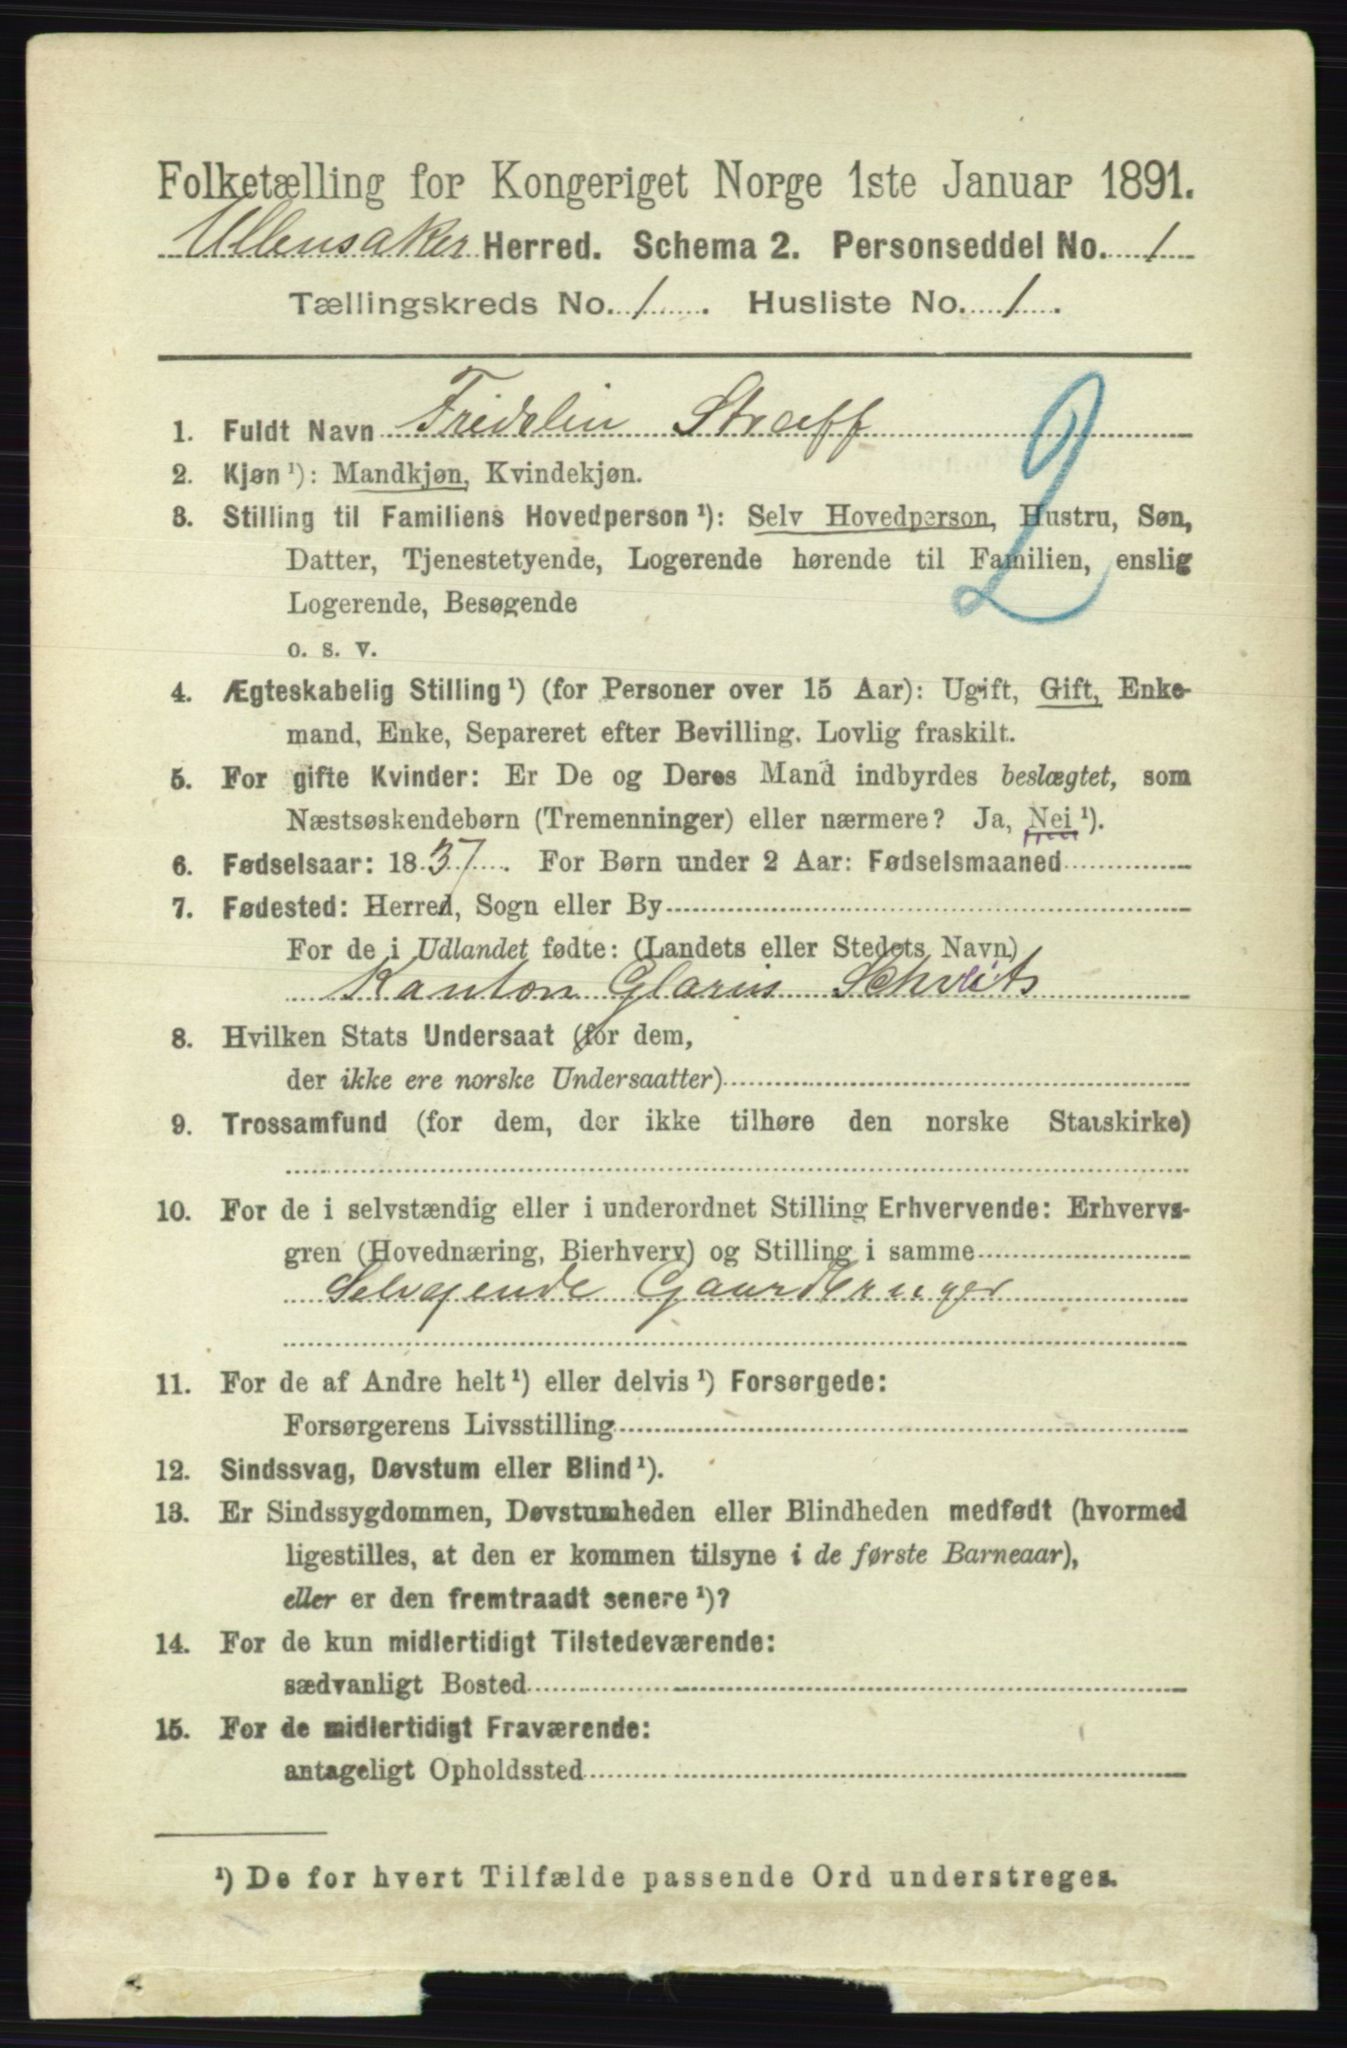 Folketælling for Kongeriget Norge 1ste Januar 1891.
Ullensaker Herred. Schema 2. Personseddel No. 1
Tællingskreds No. 1. Husliste No. 1.
1. Fuldt Navn Fridolin Streiff
2
2. Kjøn ¹): Mandkjøn, Kvindekjøn.
3. Stilling til Familiens Hovedperson ¹): Selv Hovedperson, Hustru, Søn,
Datter, Tjenestetyende, Logerende hørende til Familien, enslig
Logerende, Besøgende
o. s. v.
4. Ægteskabelig Stilling ¹) (for Personer over 15 Aar): Ugift, Gift, Enke-
mand, Enke, Separeret efter Bevilling. Lovlig fraskilt.
5. For gifte Kvinder: Er De og Deres Mand indbyrdes beslægtet, som
Næstsøskendebørn (Tremenninger) eller nærmere? Ja, Nei ¹).
6. Fødselsaar: 1837. For Børn under 2 Aar: Fødselsmaaned
7. Fødested: Herred, Sogn eller By
For de i Udlandet fødte: (Landets eller Stedets Navn)
Kanton Glarus Schveits
8. Hvilken Stats Undersaat (for dem,
der ikke ere norske Undersaatter)
9. Trossamfund (for dem, der ikke tilhøre den norske Statskirke)
10. For de i selvstændig eller i underordnet Stilling Erhvervende: Erhvervs-
gren (Hovednæring, Bierhverv) og Stilling i samme
Selvejende Gaardbruger
11. For de af Andre helt ¹) eller delvis ¹) Forsørgede:
Forsørgerens Livsstilling
12. Sindssvag, Døvstum eller Blind ¹).
13. Er Sindssygdommen, Døvstumheden eller Blindheden medfødt (hvormed
ligestilles, at den er kommen tilsyne i de første Barneaar),
eller er den fremtraadt senere ¹)?
14. For de kun midlertidigt Tilstedeværende:
sædvanligt Bosted
15. For de midlertidigt Fraværende:
antageligt Opholdssted
¹) De for hvert Tilfælde passende Ord understreges.